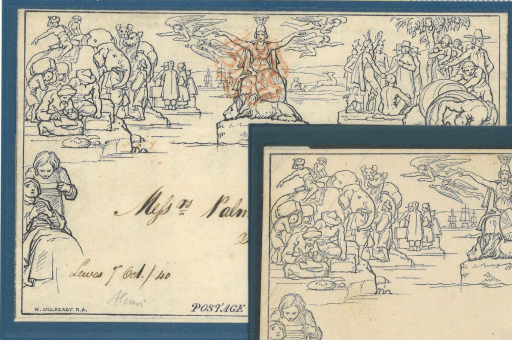 Mess rs Palm
Lewes 7 Oct./40
W. MULREADY. R.A.
POSTAGE